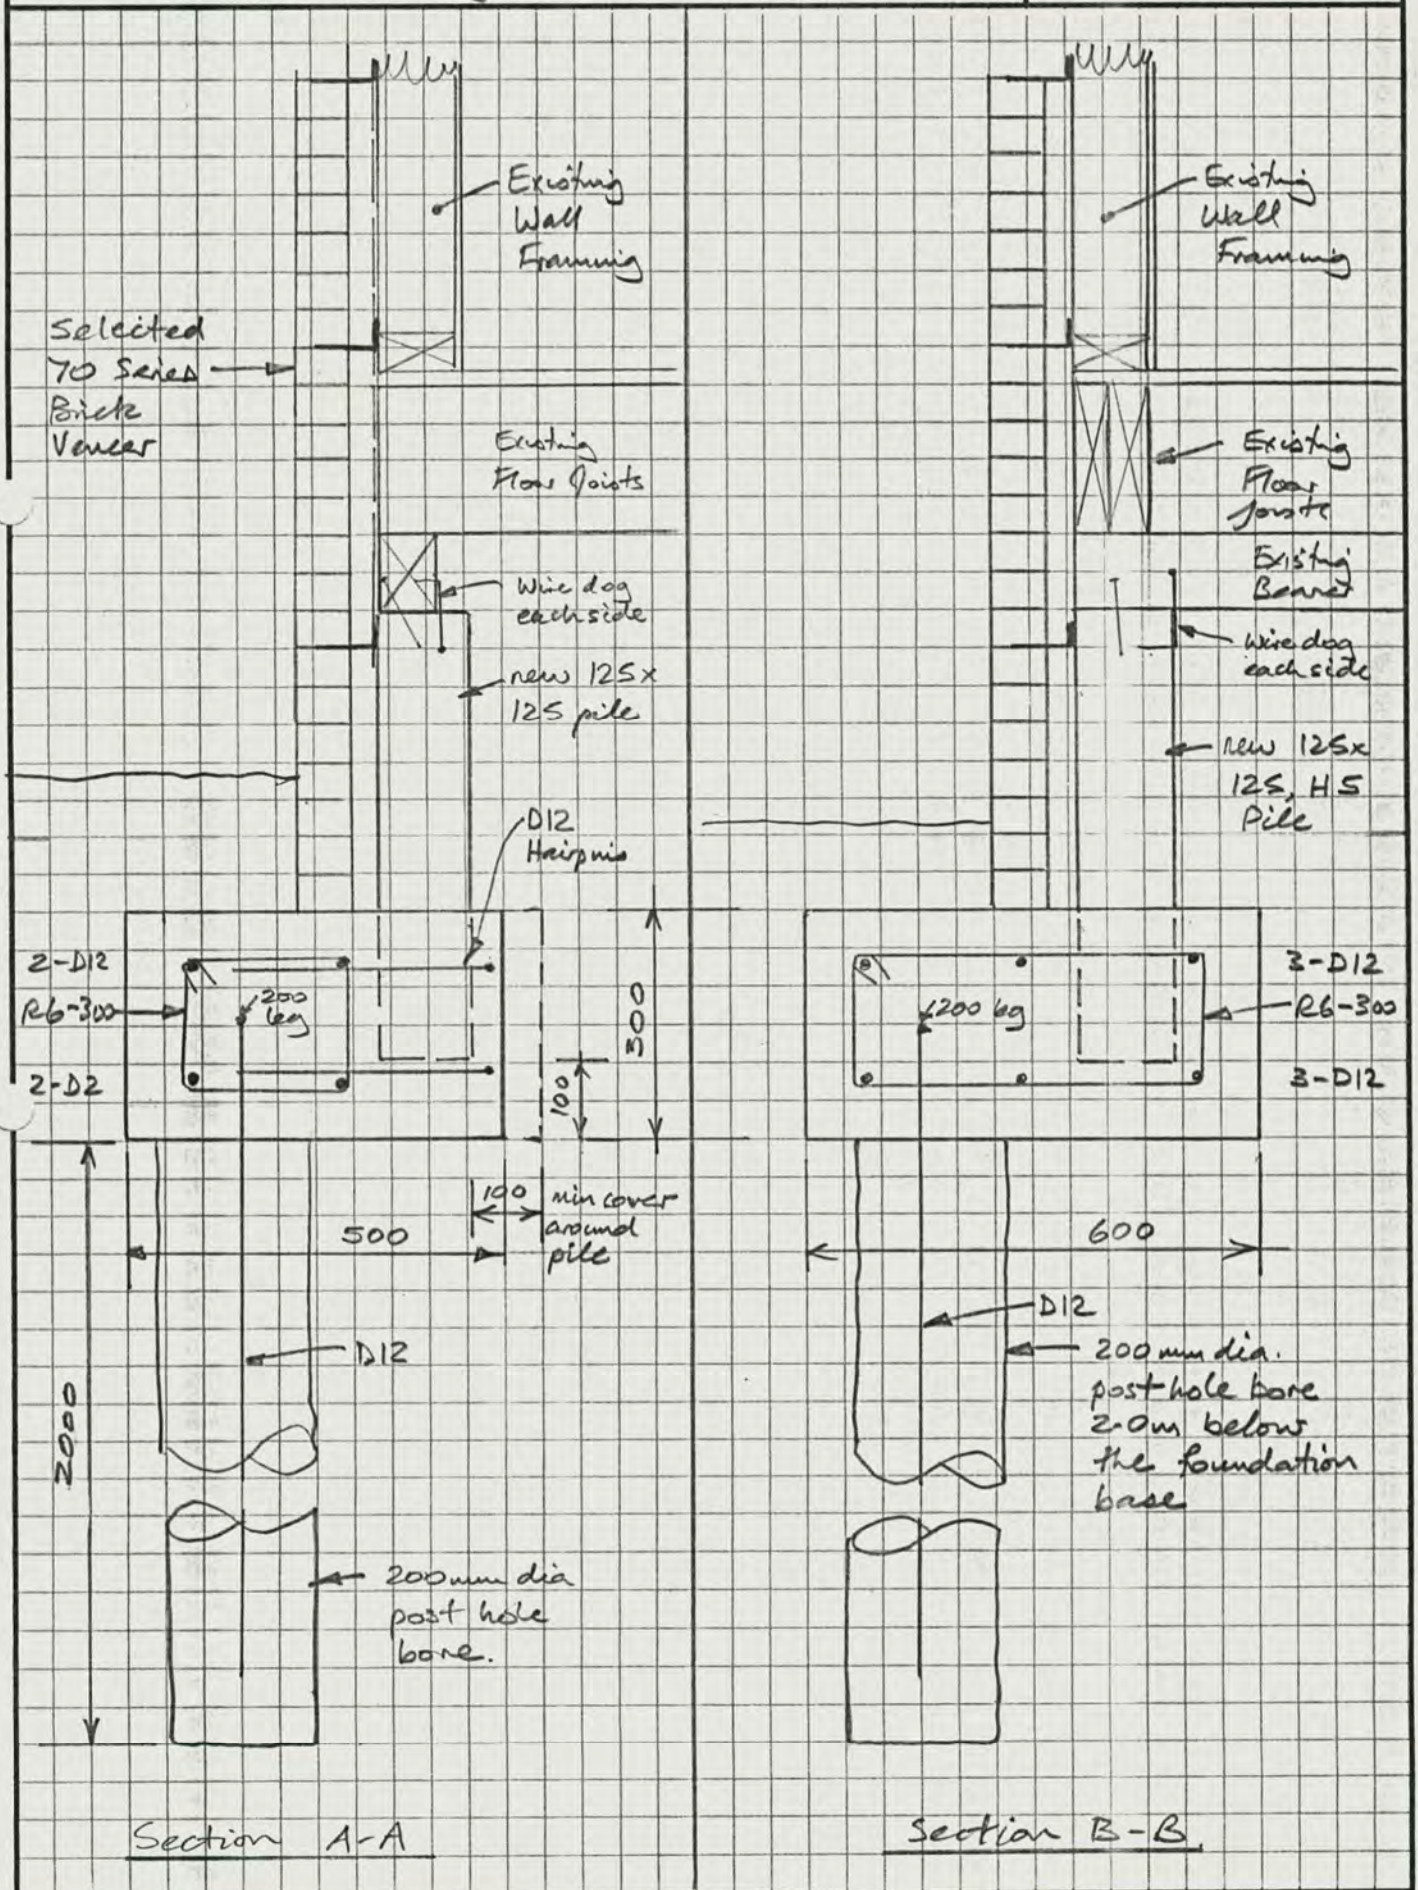 Existing
Wall
Framing
Selected
70 Series
Brick
Veneer
Existing
Floor Joists
Wire dog
each side
new 125x
125 pile
D12
Hairpins
2-D12
R6-300
2-D2
200
leg
300
100
100
min cover
around
pile
500
2000
D12
200mm dia
post hole
bore.
Section A-A
Existing
Wall
Framing
Existing
Floor
Joists
Existing
Bearer
Wire dog
each side
new 125x
125, H5
Pile
3-D12
R6-300
200 leg
3-D12
600
D12
200mm dia.
post hole bore
2.0m below
the foundation
base
Section B-B